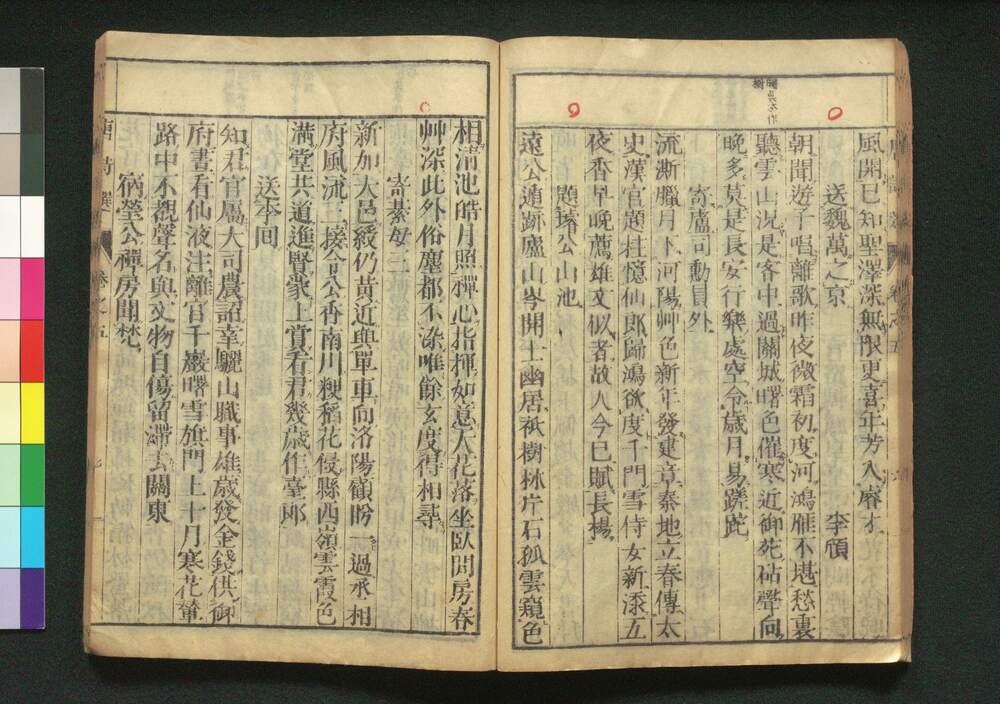 風開已知聖澤深無限更喜年芳入睿才
送魏萬之京
李頎
朝聞遊子唱離歌昨夜微霜初度河鴻雁不堪愁裏
聽雲山況是客中過關城曙色催寒近御苑砧聲向
晚多莫是長安行樂處空令歲月易蹉跎
寄盧司勳員外
流澌臘月下河陽艸色新年發建章秦地立春傳太
史漢官題柱憶仙郎歸鴻欲度千門雪侍女新添五
夜香早晚薦雄文似者故人今已賦長楊
題璿公山池
遠公遁跡廬山岑開士幽居祇樹林片石孤雲窺色
相清池皓月照禪心指揮如意天花落坐臥閒房春
艸深此外俗塵都不染唯餘玄度得相尋
寄綦毋三
新加大邑綬仍黃近與單車向洛陽顧眄一過丞相
府風流三接令公香南川粳稻花侵縣西嶺雲霞色
滿堂共道進賢蒙上賞看君幾歲作臺郎
送李回
知君官屬大司農詔幸驪山職事雄歲發金錢供御
府晝看仙液注離宮千巖曙雪旗門上十月寒花輦
路中不覩聲名與文物自傷留滯去關東
宿瑩公禪房聞梵
唐詩選
卷之五
七